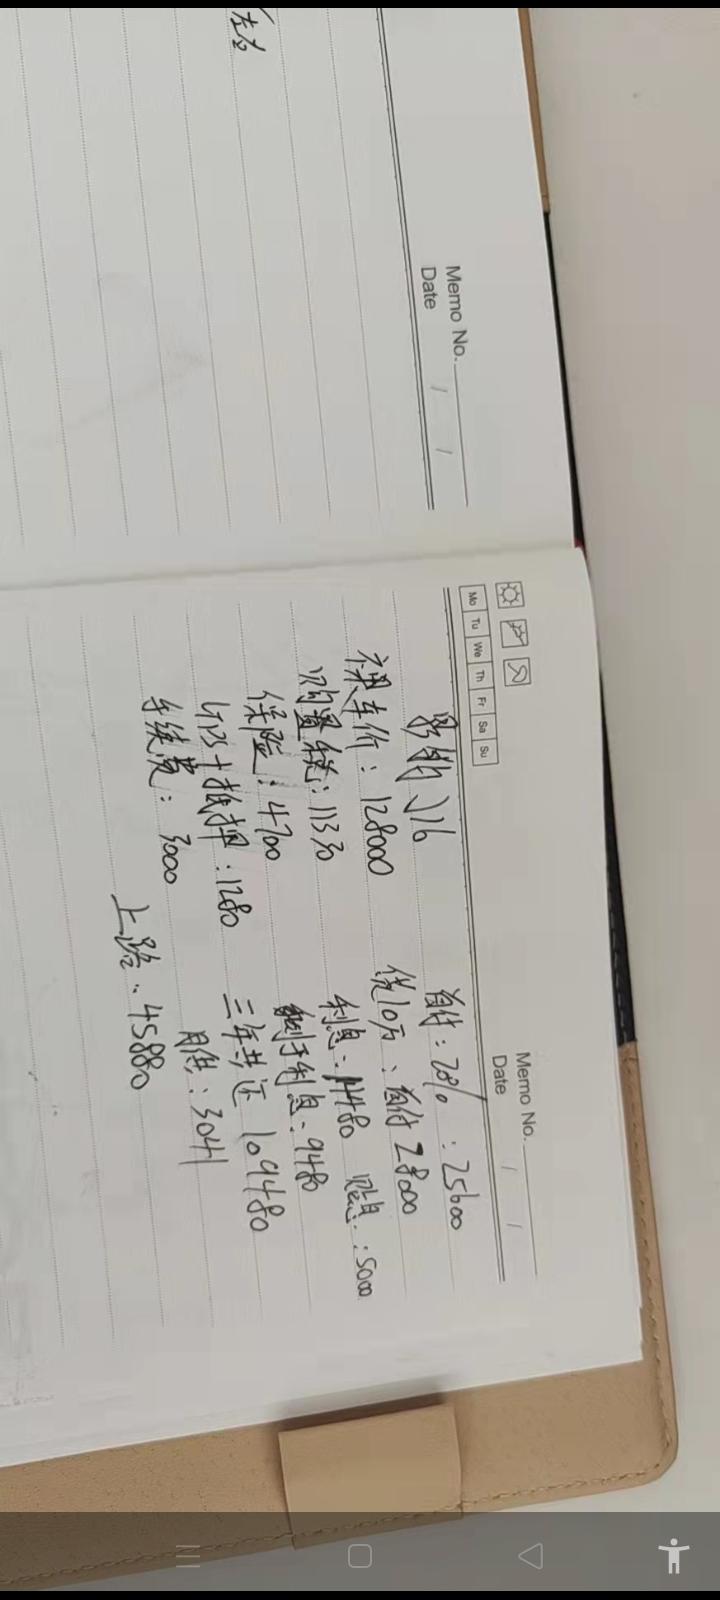 左右
Memo No.
Date / /
Mo Tu We Th Fr Sa Su
Memo No.
Date / /
影豹 J16
裸车价：128000
购置税：11330
保险：4700
GPS+抵押：1280
手续费：3000
首付：20%：25600
贷10万：首付28000
利息：14480 贴息：5000
到手利息：9480
三年共还 109480
月供：3041
上路：45880